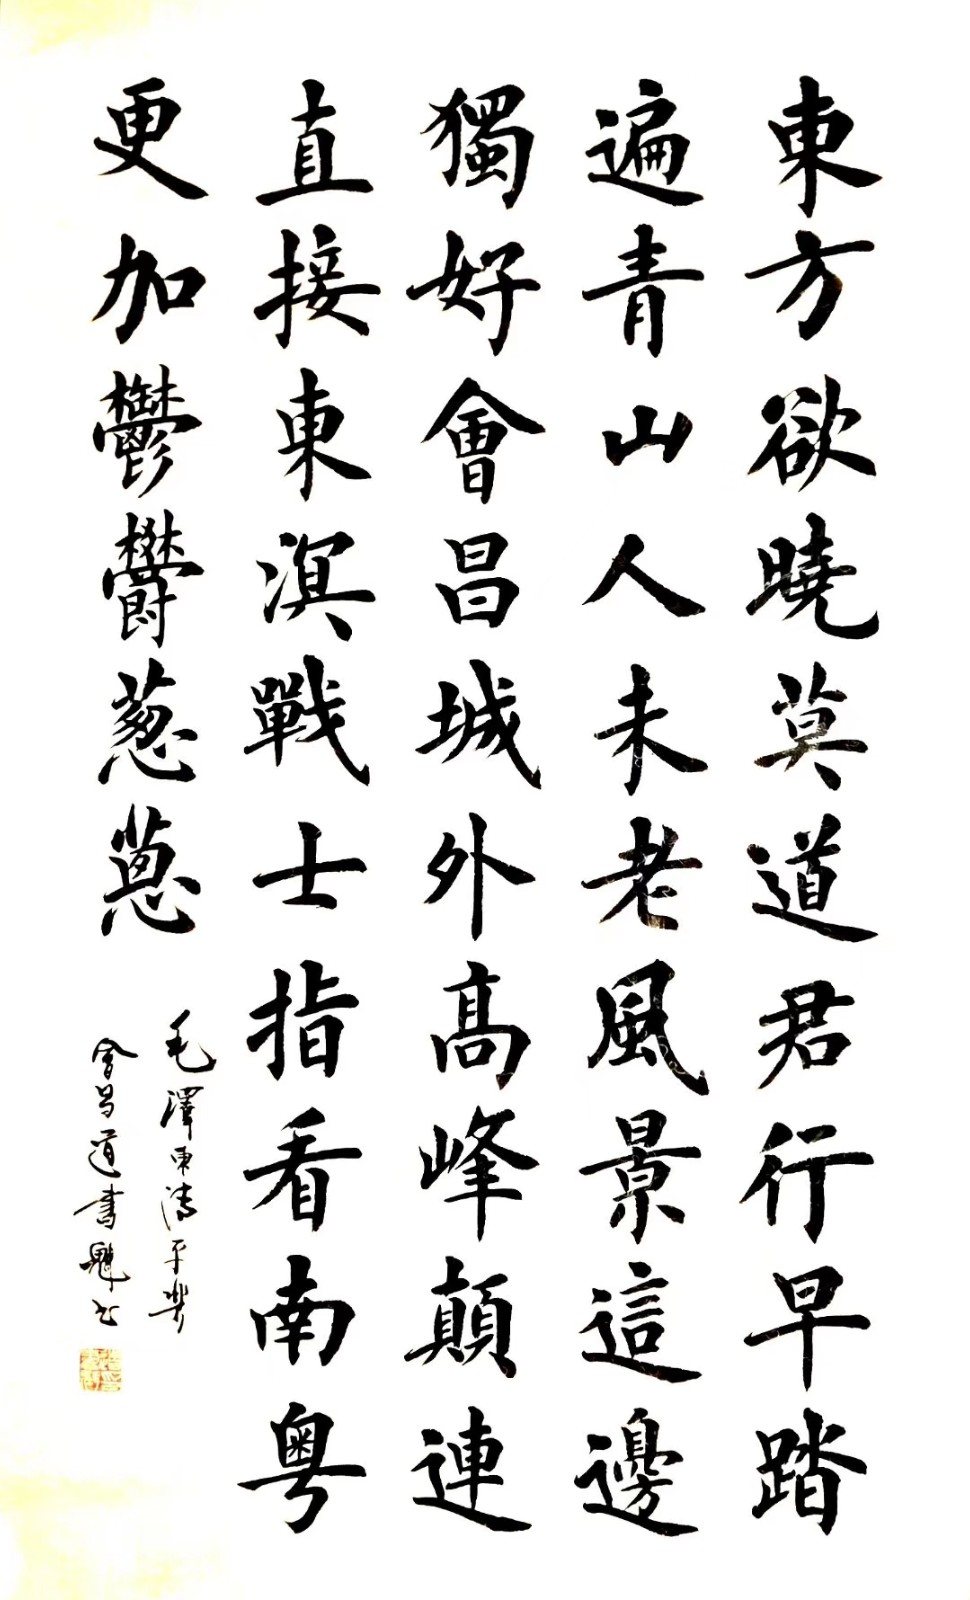 東方欲曉莫道君行早踏
遍青山人未老風景這邊
獨好會昌城外高峰顛連
直接東溟戰士指看南粤
更加鬱鬱蔥蔥
毛澤東清平樂
會昌道書魁書